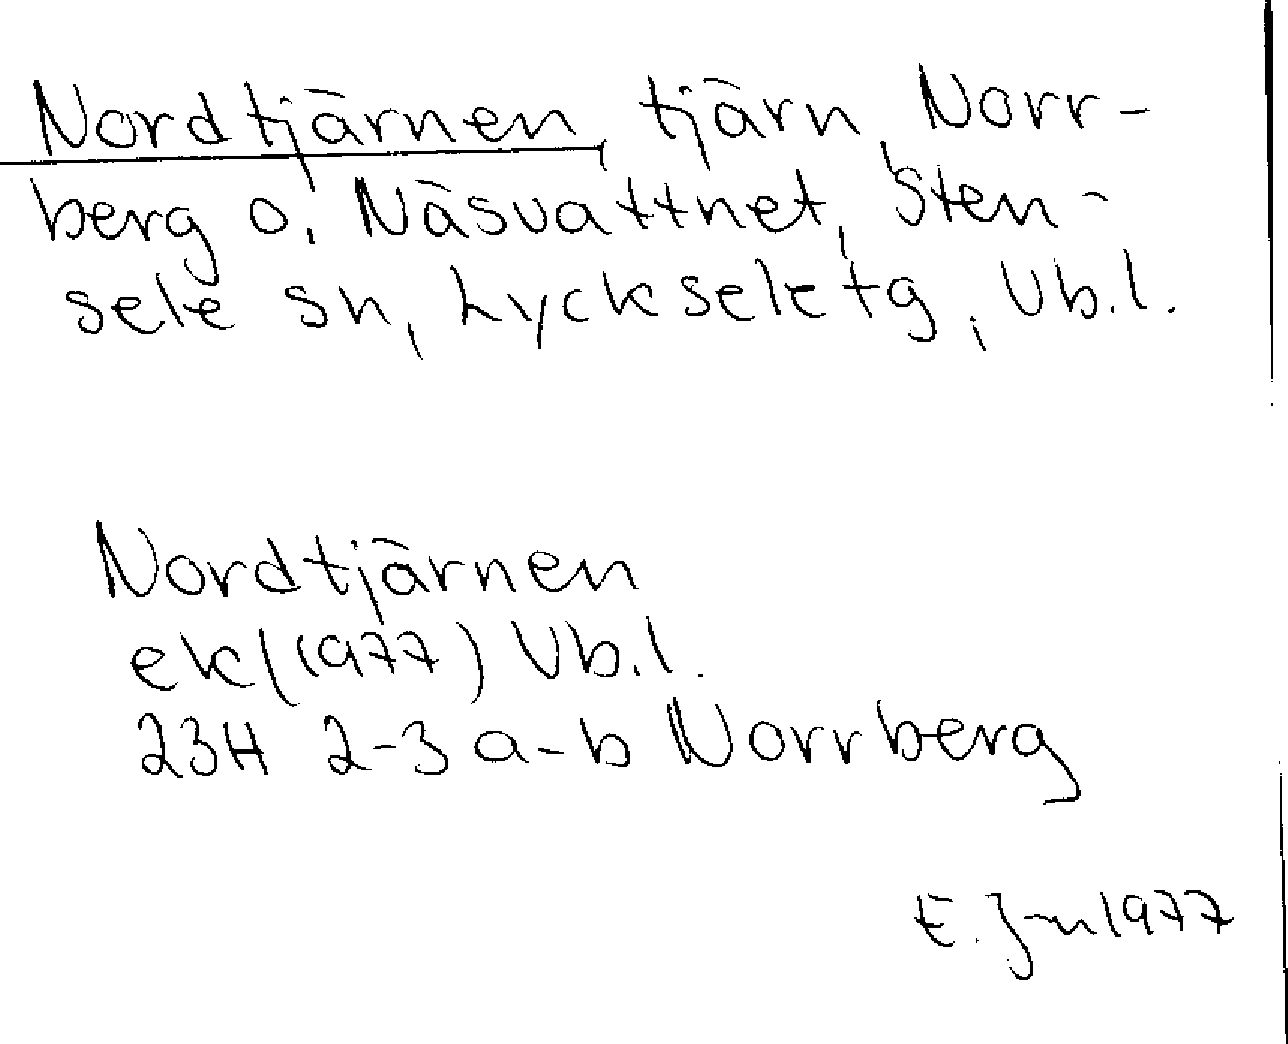 Nordtjärnen, tjärn, Norr-
berg o. Näsvattnet, Sten-
sele sn, Lycksele tg, Vb.l.
Nordtjärnen
ek (1977) Vb.l.
23H 2-3 a-b Norrberg
E. J-n 1977